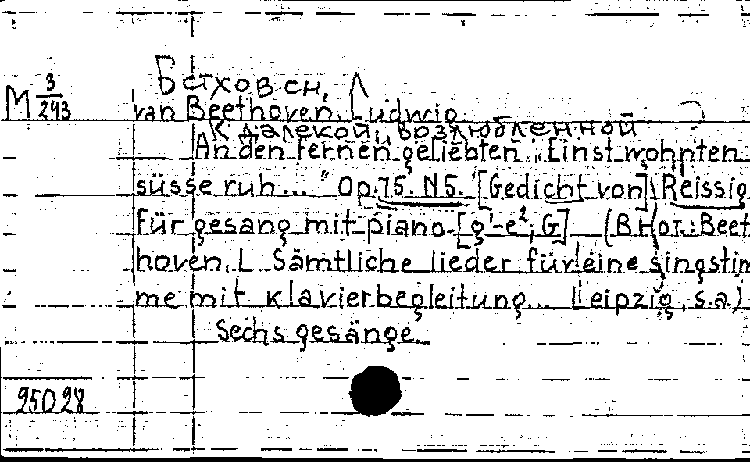 Бетховен, Л
М 3/293
van Beethoven, Ludwig
К далекой, возлюбленной ?
An den fernen geliebten „Einst wohnten
süsse ruh... " Op.75. N5. [Gedicht von] Reissig
Für gesang mit piano [g'-e², G] (В нот.: Beet
hoven, L. Sämtliche lieder für eine singstim
me mit klavierbegleitung... Leipzig, s.a.)
Sechs gesänge.
95028